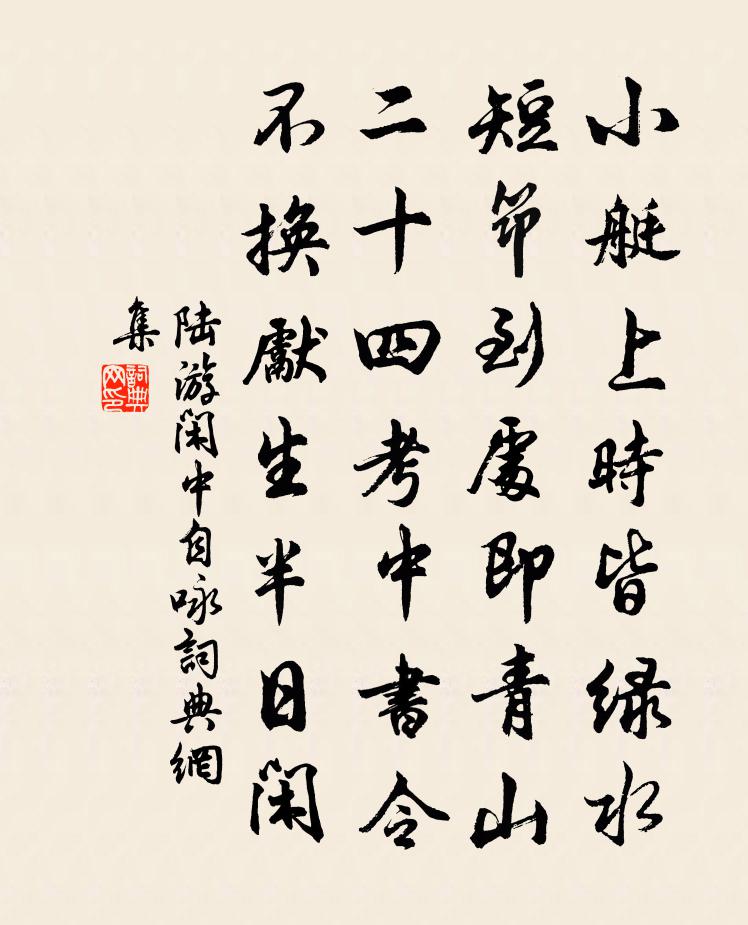 小艇上時皆緑水
短筇到處即青山
二十四考中書令
不換獻生半日閑
陸游閑中自咏詞典網
集
詞典
网印